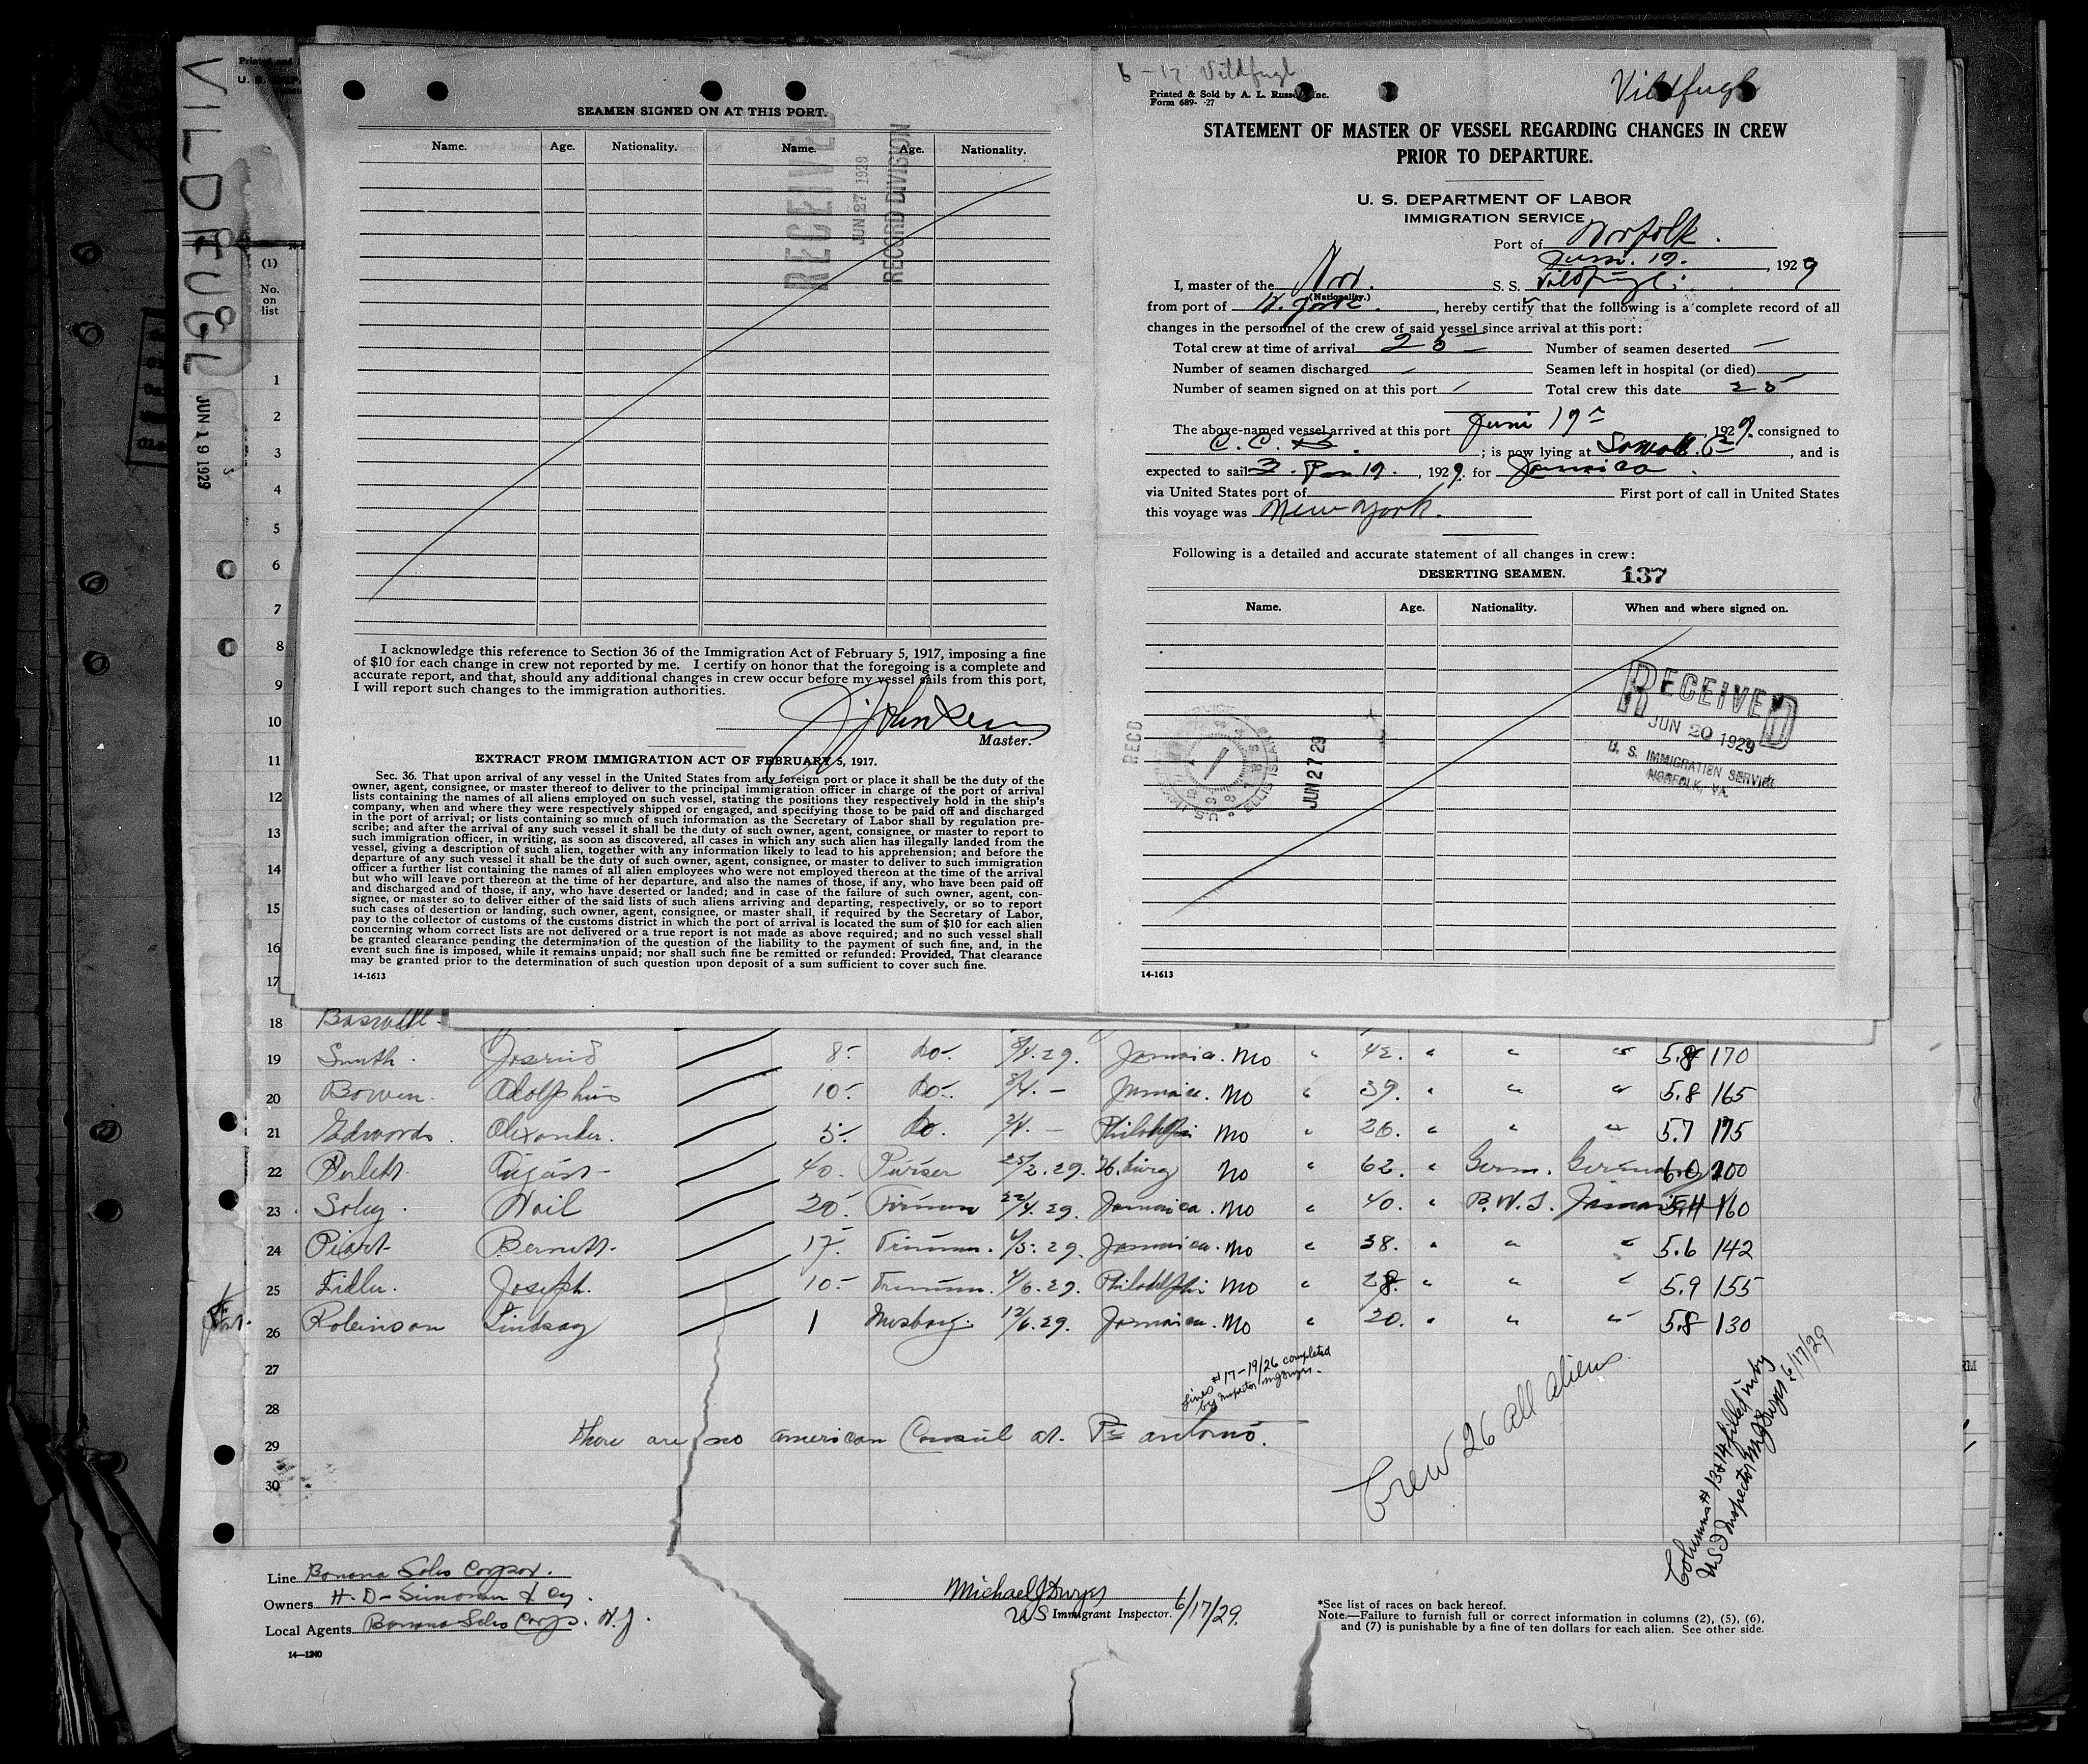 VILDFUGL
JUN 19 1929
Printed and
(1)
No.
on
list
1
2
3
4
5
6
7
8
9
10
11
12
13
14
15
16
17
SEAMEN SIGNED ON AT THIS PORT.
Name. Age. Nationality. Name. Age. Nationality.
RECEIVED
JUN 27 1929
RECORD DIVISION
I acknowledge this reference to Section 36 of the Immigration Act of February 5, 1917, imposing a fine
of $10 for each change in crew not reported by me. I certify on honor that the foregoing is a complete and
accurate report, and that, should any additional changes in crew occur before my vessel sails from this port,
I will report such changes to the immigration authorities.
Master.
EXTRACT FROM IMMIGRATION ACT OF FEBRUARY 5, 1917.
Sec. 36. That upon arrival of any vessel in the United States from any foreign port or place it shall be the duty of the
owner, agent, consignee, or master thereof to deliver to the principal immigration officer in charge of the port of arrival
lists containing the names of all aliens employed on such vessel, stating the positions they respectively hold in the ship's
company, when and where they were respectively shipped or engaged, and specifying those to be paid off and discharged
in the port of arrival; or lists containing so much of such information as the Secretary of Labor shall by regulation pre-
scribe; and after the arrival of any such vessel it shall be the duty of such owner, agent, consignee, or master to report to
such immigration officer, in writing, as soon as discovered, all cases in which any such alien has illegally landed from the
vessel, giving a description of such alien, together with any information likely to lead to his apprehension; and before the
departure of any such vessel it shall be the duty of such owner, agent, consignee, or master to deliver to such immigration
officer a further list containing the names of all alien employees who were not employed thereon at the time of the arrival
but who will leave port thereon at the time of her departure, and also the names of those, if any, who have been paid off
and discharged and of those, if any, who have deserted or landed; and in case of the failure of such owner, agent, con-
signee, or master so to deliver either of the said lists of such aliens arriving and departing, respectively, or so to report
such cases of desertion or landing, such owner, agent, consignee, or master shall, if required by the Secretary of Labor,
pay to the collector of customs of the customs district in which the port of arrival is located the sum of $10 for each alien
concerning whom correct lists are not delivered or a true report is not made as above required; and no such vessel shall
be granted clearance pending the determination of the question of the liability to the payment of such fine, and, in the
event such fine is imposed, while it remains unpaid; nor shall such fine be remitted or refunded: Provided, That clearance
may be granted prior to the determination of such question upon deposit of a sum sufficient to cover such fine.
14-1613
6-17 Vildfugl
Printed & Sold by A. L. Russell, Inc.
Form 689- -27
Vildfugl
STATEMENT OF MASTER OF VESSEL REGARDING CHANGES IN CREW
PRIOR TO DEPARTURE.
U. S. DEPARTMENT OF LABOR
IMMIGRATION SERVICE
Port of Norfolk.
Juni. 19. , 1929
I, master of the Nor. S. S. Vildfugl.
(Nationality.)
from port of N. York. , hereby certify that the following is a complete record of all
changes in the personnel of the crew of said vessel since arrival at this port:
Total crew at time of arrival 25 Number of seamen deserted —
Number of seamen discharged Seamen left in hospital (or died)
Number of seamen signed on at this port Total crew this date 25
The above-named vessel arrived at this port Juni 19 , 1929. consigned to
C. C. ; is now lying at , and is
expected to sail , 1929. for Jamaica.
via United States port of First port of call in United States
this voyage was New York.
Following is a detailed and accurate statement of all changes in crew:
DESERTING SEAMEN. 137
Name. Age. Nationality. When and where signed on.
RECEIVED
JUN 20 1929
U. S. IMMIGRATION SERVICE
NORFOLK, VA.
RECD
JUN 27 29
14-1613
18 Baswell.
19 Smith. 8- do- 8/4.29. Jamaica. No " 42. " " " 5.8 170
20 Bowen. Adolphus 10- do- 8/4. — Jamaica. No " 39. " " " 5.8 165
21 Edwards. Alexander. 5- do. — Philadelphi No " 26. " " " 5.7 175
22 August- 40. Purser 25/2.29. H.burg No " 62. " Germ. Germany 6.0 200
23 Soley. Nail 20- Fireman 22/4.29. Jamaica. No " 40. " B.W.I. Jamaica 5.4 160
24 Piart Bernett. 17. Trimm. 4/5.29. Jamaica. No " 38. " " " 5.6 142
25 Fidler. Joseph. 10- Trimm. 4/6.29. Philadelphi No " 28. " " " 5.9 155
26 Robinson Lindsay 1 Messboy. 12/6.29. Jamaica. No " 20. " " " 5.8 130
27
28
29
30
Lines # 17-19/26 completed
by Inspector
there are no american Consul at. Pt antonio.
Crew 26 all aliens
Columns # 13+14 filled in by
US I Inspector 6/17/29
Line Banana Sales Corpor.
Owners H. D- Simonsen & Co.
Local Agents Banana Sales Corp. N.J.
14—1240
Michael J.
US Immigrant Inspector. 6/17/29.
*See list of races on back hereof.
Note.—Failure to furnish full or correct information in columns (2), (5), (6),
and (7) is punishable by a fine of ten dollars for each alien. See other side.